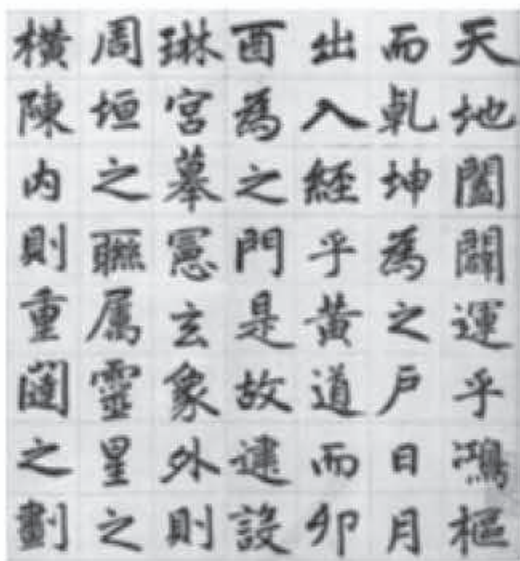 天地闔闢運乎鴻樞
而乹坤為之户日月
出入経乎黄道而卯
酉為之門是故建設
琳宮摹憲玄象外則
周垣之聮属靈星之
横陳内則重闥之劃